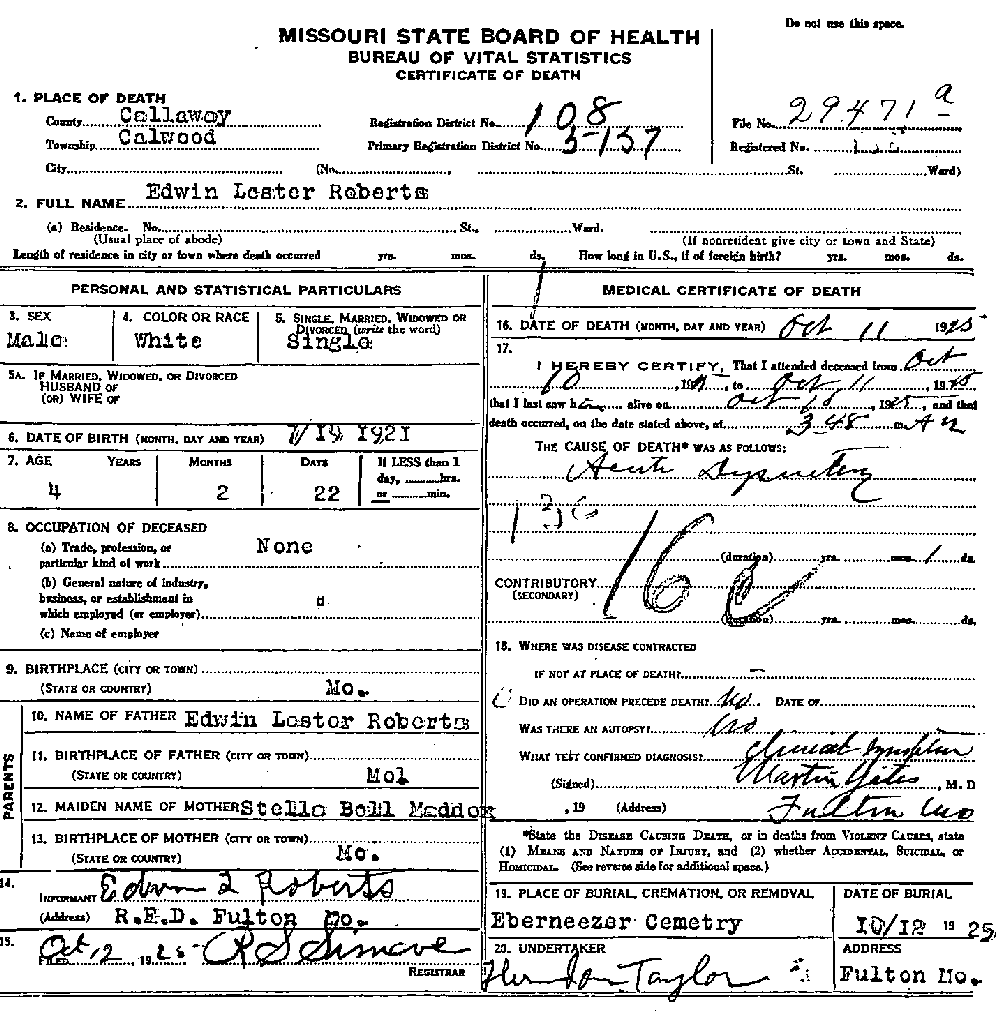 Do not use this space.
MISSOURI STATE BOARD OF HEALTH
BUREAU OF VITAL STATISTICS
CERTIFICATE OF DEATH
1. PLACE OF DEATH
County Callaway
Township Calwood
City (No. St. Ward)
Registration District No. 108
Primary Registration District No. 5137
File No. 29471 a
Registered No.
2. FULL NAME Edwin Lester Roberts
(a) Residence. No. St., Ward.
(Usual place of abode) (If nonresident give city or town and State)
Length of residence in city or town where death occurred yrs. mos. ds. How long in U.S., if of foreign birth? yrs. mos. ds.
PERSONAL AND STATISTICAL PARTICULARS
3. SEX Male
4. COLOR OR RACE White
5. SINGLE, MARRIED, WIDOWED OR DIVORCED (write the word) Single
5A. IF MARRIED, WIDOWED, OR DIVORCED
HUSBAND OF
(OR) WIFE OF
6. DATE OF BIRTH (MONTH, DAY AND YEAR) 7/19 1921
7. AGE YEARS MONTHS DAYS If LESS than 1
day, hrs.
or min.
4 2 22
8. OCCUPATION OF DECEASED
(a) Trade, profession, or
particular kind of work None
(b) General nature of industry,
business, or establishment in
which employed (or employer)
(c) Name of employer
9. BIRTHPLACE (CITY OR TOWN)
(STATE OR COUNTRY) Mo.
PARENTS
10. NAME OF FATHER Edwin Lestor Roberts
11. BIRTHPLACE OF FATHER (CITY OR TOWN)
(STATE OR COUNTRY) Mol
12. MAIDEN NAME OF MOTHER Stella Bell Maddox
13. BIRTHPLACE OF MOTHER (CITY OR TOWN)
(STATE OR COUNTRY) Mo.
14.
INFORMANT Edwin L Roberts
(Address) R.F.D. Fulton Mo.
15.
FILED Oct 12, 1925
REGISTRAR
MEDICAL CERTIFICATE OF DEATH
16. DATE OF DEATH (MONTH, DAY AND YEAR) Oct 11 1925
17.
I HEREBY CERTIFY, That I attended deceased from Oct
10, 1925, to Oct 11, 1925
that I last saw him alive on Oct 10, 1925, and that
death occurred, on the date stated above, at 3 45 A m
THE CAUSE OF DEATH* WAS AS FOLLOWS:
Acute Dysentery
16 c
(duration) yrs. mos. 1 ds.
CONTRIBUTORY
(SECONDARY)
(duration) yrs. mos. ds.
18. WHERE WAS DISEASE CONTRACTED
IF NOT AT PLACE OF DEATH? —
DID AN OPERATION PRECEDE DEATH? No DATE OF
WAS THERE AN AUTOPSY? No
WHAT TEST CONFIRMED DIAGNOSIS? Clinical symptom
(Signed) Martin Yates, M. D
, 19 (Address) Fulton Mo
*State the DISEASE CAUSING DEATH, or in deaths from VIOLENT CAUSES, state
(1) MEANS AND NATURE OF INJURY, and (2) whether ACCIDENTAL, SUICIDAL, or
HOMICIDAL. (See reverse side for additional space.)
19. PLACE OF BURIAL, CREMATION, OR REMOVAL
Eberneezer Cemetry
DATE OF BURIAL
10/12 1925
20. UNDERTAKER
Herndon Taylor
ADDRESS
Fulton Mo.